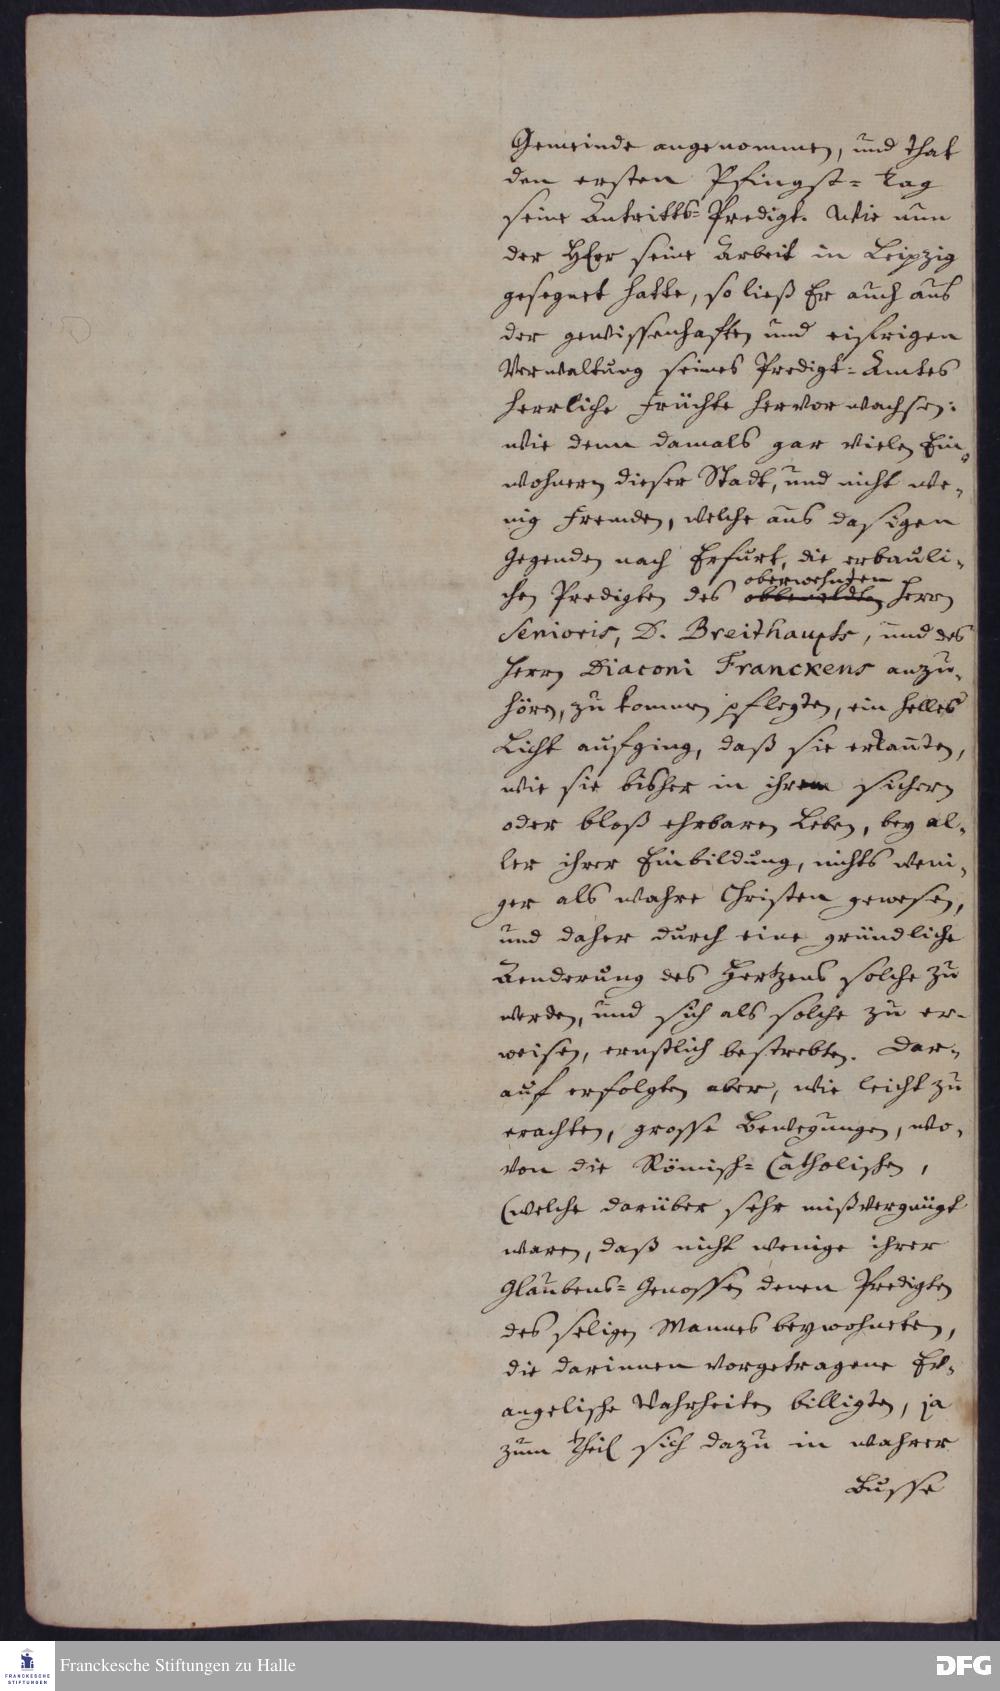 Gemeinde angenommen, und that
den ersten Pfingst= Tag
seine Antritts=Predigt. Wie nun
der HErr seine Arbeit in Leipzig
gesegnet hatte, so ließ Er auch aus
der gewissenhafften und eifrigen
Verwaltung seines Predigt=Amtes
herrliche Früchte hervor wachsen:
wie denn damals gar vielen Ein=
wohnern dieser Stadt, und nicht we=
nig Fremden, welche aus dasigen
Gegenden nach Erfurt, die erbauli=
oberwehnten
chen Predigten des Herrn
Senioris, D. Breithaupts, und des
Herrn Diaconi Franckens anzu=
hören, zu kommen pflegten, ein helles
Licht aufging, daß sie erkañten,
wie sie bisher in ihrem sichern
oder bloß ehrbaren Leben, bey al=
ler ihrer Einbildung, nichts weni=
ger als wahre Christen gewesen,
und daher durch eine gründliche
Aenderung des Hertzens solche zu
werden, und sich als solche zu er=
weisen, ernstlich bestrebten. Dar=
auf erfolgten aber, wie leicht zu
erachten, grosse Bewegungen, wo=
von die Römisch= Catholischen,
(welche darüber sehr mißvergnügt
waren, daß nicht wenige ihrer
Glaubens=Genossen denen Predigten
des seligen Mannes beywohneten,
die darinnen vorgetragene Ev=
angelische Wahrheiten billigten, ja
zum Theil sich dazu in wahrer
Busse
FRANCKESCHE
STIFTUNGEN
Franckesche Stiftungen zu Halle
DFG